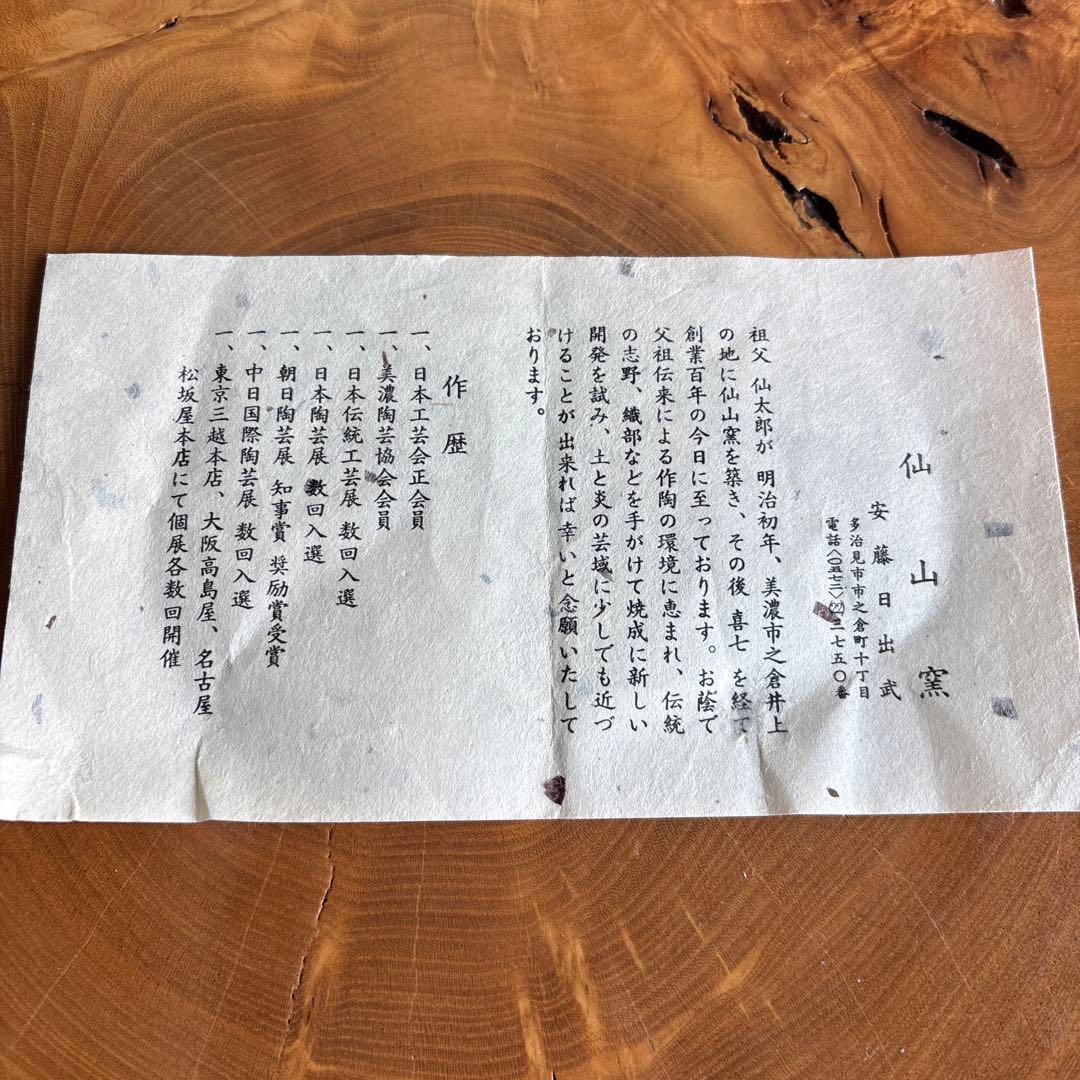 仙山窯
安藤日出武
多治見市市之倉町十丁目
電話〈〇五七二〉(22)二七五〇番
祖父 仙太郎が 明治初年、美濃市之倉井上
の地に仙山窯を築き、その後 喜七 を経て
創業百年の今日に至っております。お蔭で
父祖伝来による作陶の環境に恵まれ、伝統
の志野、織部などを手がけて焼成に新しい
開発を試み、土と炎の芸域に少しでも近づ
けることが出来れば幸いと念願いたして
おります。
作歴
一、日本工芸会正会員
一、美濃陶芸協会会員
一、日本伝統工芸展 数回入選
一、日本陶芸展 数回入選
一、朝日陶芸展 知事賞 奨励賞受賞
一、中日国際陶芸展 数回入選
一、東京三越本店、大阪高島屋、名古屋
松坂屋本店にて個展各数回開催